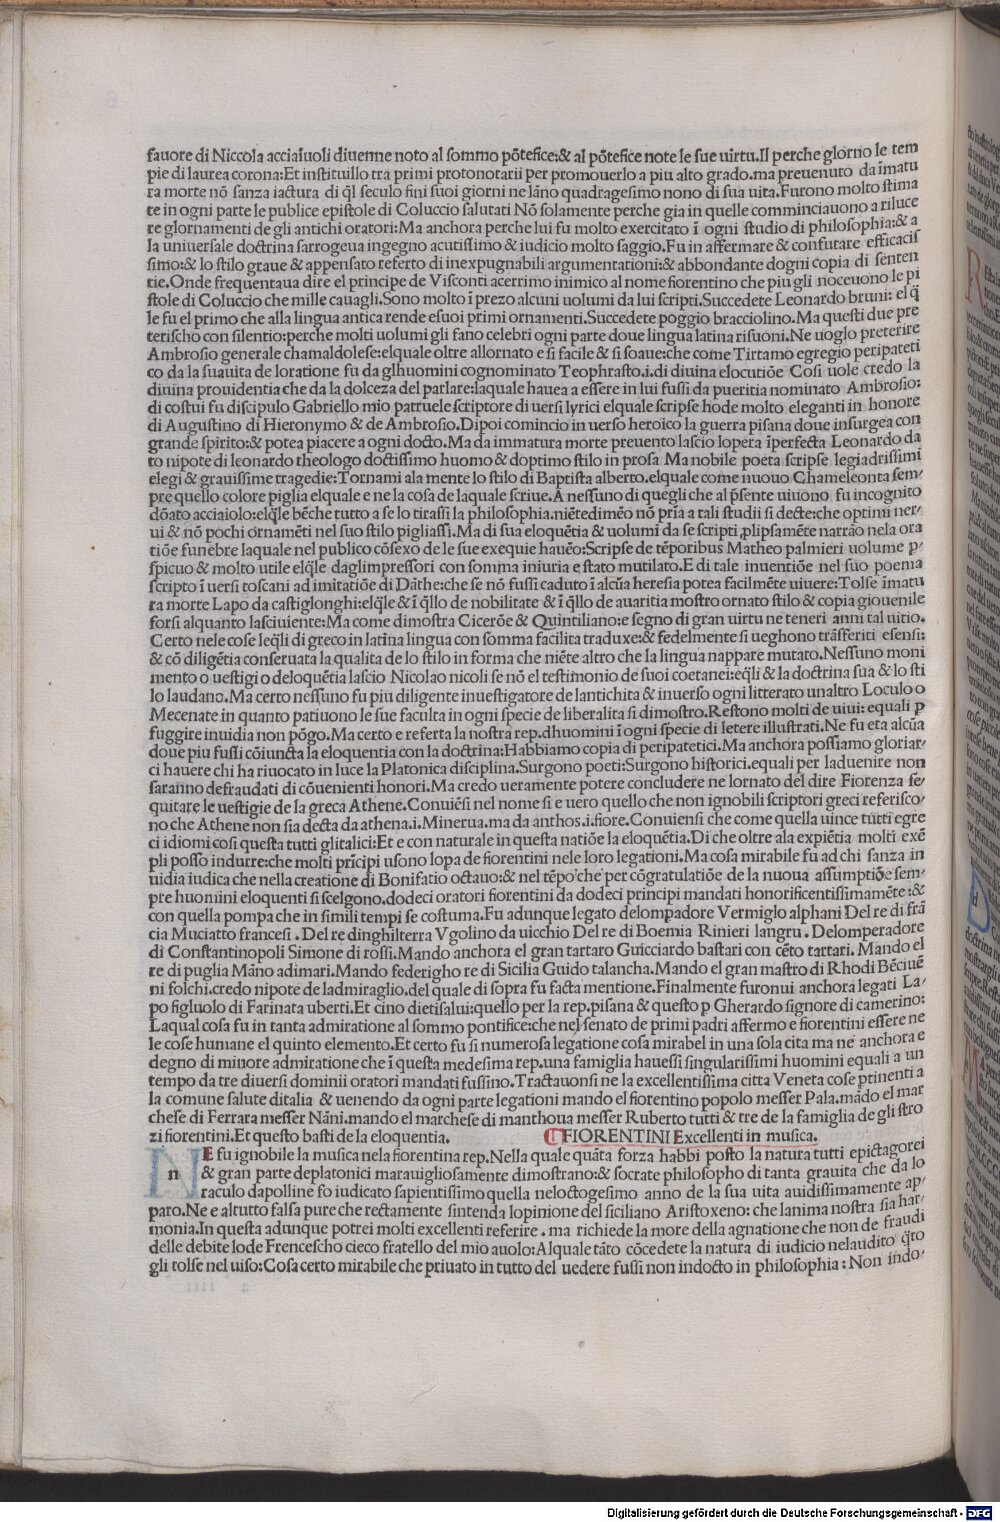 fauore di Niccola acciaiuoli diuenne noto al sommo põtefice:& al põtefice note le sue uirtu.Il perche glorno le tem
pie di laurea corona:Et instituillo tra primi protonotarii per promouerlo a piu alto grado.ma preuenuto da ĩmatu
ra morte nõ sanza iactura di q̃l seculo fini suoi giorni ne lãno quadragesimo nono di sua uita.Furono molto stima
te in ogni parte le publice epistole di Coluccio salutati Nõ solamente perche gia in quelle comminciauono a riluce
re glornamenti de gli antichi oratori:Ma anchora perche lui fu molto exercitato ĩ ogni studio di philosophia:& a
la uniuersale doctrina sarrogeua ingegno acutissimo & iudicio molto saggio.Fu in affermare & confutare efficacis
simo:& lo stilo graue & appensato referto di inexpugnabili argumentationi:& abbondante dogni copia di senten
tie.Onde frequentaua dire el principe de Visconti acerrimo inimico al nome fiorentino che piu gli noceuono le pi
stole di Coluccio che mille cauagli.Sono molto ĩ prezo alcuni uolumi da lui scripti.Succedete Leonardo bruni: el q̃
le fu el primo che alla lingua antica rende esuoi primi ornamenti.Succedete poggio bracciolino.Ma questi due pre
terischo con silentio:perche molti uolumi gli fano celebri ogni parte doue lingua latina risuoni.Ne uoglo preterire
Ambrosio generale chamaldolese:elquale oltre allornato e si facile & si soaue:che come Tirtamo egregio peripateti
co da la suauita de loratione fu da glhuomini cognominato Teophrasto.i.di diuina elocutiõe Cosi uole credo la
diuina prouidentia che da la dolceza del parlare:laquale hauea a essere in lui fussi da pueritia nominato Ambrosio:
di costui fu discipulo Gabriello mio patruele scriptore di uersi lyrici elquale scripse hode molto eleganti in honore
di Augustino di Hieronymo & de Ambrosio.Dipoi comincio in uerso heroico la guerra pisana doue insurgea con
grande spirito:& potea piacere a ogni docto.Ma da immatura morte preuento lascio lopera ĩperfecta Leonardo da
to nipote di leonardo theologo doctissimo huomo & doptimo stilo in prosa Ma nobile poeta scripse legiadrissimi
elegi & grauissime tragedie:Tornami ala mente lo stilo di Baptista alberto.elquale come nuouo Chameleonta sem/
pre quello colore piglia elquale e ne la cosa de laquale scriue.A nessuno di quegli che al p̃sente uiuono fu incognito
dõato acciaiolo:elq̃le bẽche tutto a se lo tirassi la philosophia.niẽtedimẽo nõ pria a tali studii si decte:che optimi ner/
ui & nõ pochi ornamẽti nel suo stilo pigliassi.Ma di sua eloquẽtia & uolumi da se scripti plipsamẽte narrão nela ora
tiõe funebre laquale nel publico cõsexo de le sue exequie hauẽo:Scripse de tẽporibus Matheo palmieri uolume p/
spicuo & molto utile elq̃le daglimpressori con somma iniuria e stato mutilato.E di tale inuentiõe nel suo poema
scripto ĩ uersi toscani ad imitatiõe di Dãthe:che se nõ fussi caduto ĩ alcũa heresia potea facilmẽte uiuere:Tolse ĩmatu
ra morte Lapo da castiglonghi:elq̃le & ĩ q̃llo de nobilitate & ĩ q̃llo de auaritia mostro ornato stilo & copia giouenile
forsi alquanto lasciuiente:Ma come dimostra Cicerõe & Quintiliano:e segno di gran uirtu ne teneri anni tal uitio.
Certo nele cose leq̃li di greco in latina lingua con somma facilita traduxe:& fedelmente si ueghono trãsferiti esensi:
& cõ diligẽtia conseruata la qualita de lo stilo in forma che niẽte altro che la lingua nappare mutato.Nessuno moni
mento o uestigi o deloquẽtia lascio Nicolao nicoli se nõ el testimonio de suoi coetanei:eq̃li & la doctrina sua & lo sti
lo laudano.Ma certo nessuno fu piu diligente inuestigatore de lantichita & inuerso ogni litterato unaltro Loculo o
Mecenate in quanto patiuono le sue faculta in ogni specie de liberalita si dimostro.Restono molti de uiui: equali p
fuggire inuidia non põgo.Ma certo e referta la nostra rep.dhuomini ĩ ogni specie di letere illustrati.Ne fu eta alcũa
doue piu fussi cõiuncta la eloquentia con la doctrina:Habbiamo copia di peripatetici.Ma anchora possiamo gloriar/
ci hauere chi ha riuocato in luce la Platonica disciplina.Surgono poeti:Surgono historici.equali per laduenire non
saranno defraudati di cõuenienti honori.Ma credo ueramente potere concludere ne lornato del dire Fiorenza se/
quitare le uestigie de la greca Athene.Conuiẽsi nel nome si e uero quello che non ignobili scriptori greci referisco/
no che Athene non sia decta da athena.i.Minerua.ma da anthos.i.fiore.Conuiensi che come quella uince tutti egre
ci idiomi cosi questa tutti glitalici:Et e con naturale in questa natiõe la eloquẽtia.Di che oltre ala expiẽtia molti exẽ
pli posso indurre:che molti prĩcipi usono lopa de fiorentini nele loro legationi.Ma cosa mirabile fu ad chi sanza in
uidia iudica che nella creatione di Bonifatio octauo:& nel tẽpo che per cõgratulatiõe de la nuoua assumptiõe sem/
pre huomini eloquenti si scelgono.dodeci oratori fiorentini da dodeci principi mandati honorificentissimamẽte:&
con quella pompa che in simili tempi se costuma.Fu adunque legato delompadore Vermiglo alphani Del re di frã
cia Muciatto francesi.Del re dinghilterra Vgolino da uicchio Del re di Boemia Rinieri langru.Delomperadore
di Constantinopoli Simone di rossi.Mando anchora el gran tartaro Guicciardo bastari con cẽto tartari. Mando el
re di puglia Mãno adimari.Mando federigho re di Sicilia Guido talancha.Mando el gran mastro di Rhodi Bẽciuẽ
ni folchi.credo nipote de ladmiraglio.del quale di sopra fu facta mentione.Finalmente furonui anchora legati La/
po figluolo di Farinata uberti.Et cino dietisalui:quello per la rep.pisana & questo p Gherardo signore di camerino:
Laqual cosa fu in tanta admiratione al sommo pontifice:che nel senato de primi padri affermo e fiorentini essere ne
le cose humane el quinto elemento.Et certo fu si numerosa legatione cosa mirabel in una sola cita ma ne anchora e
degno di minore admiratione che ĩ questa medesima rep.una famiglia hauessi singularissimi huomini equali a un
tempo da tre diuersi dominii oratori mandati fussino.Tractauonsi ne la excellentissima citta Veneta cose ptinenti a
la comune salute ditalia & uenendo da ogni parte legationi mando el fiorentino popolo messer Pala.mãdo el mar
chese di Ferrara messer Nãni.mando el marchese di manthoua messer Ruberto tutti & tre de la famiglia de gli stro
zi fiorentini.Et questo basti de la eloquentia. FIORENTINI Excellenti in musica.
n E fu ignobile la musica nela fiorentina rep.Nella quale quãta forza habbi posto la natura tutti epictagorei
& gran parte deplatonici marauigliosamente dimostrano:& socrate philosopho di tanta grauita che da lo
raculo dapolline fo iudicato sapientissimo quella neloctogesimo anno de la sua uita auidissimamente ap/
paro.Ne e altutto falsa pure che rectamente sintenda lopinione del siciliano Aristoxeno: che lanima nostra sia har/
monia.In questa adunque potrei molti excellenti referire.ma richiede la more della agnatione che non de fraudi
delle debite lode Frencescho cieco fratello del mio auolo:Alquale tãto cõcedete la natura di iudicio nelaudito q̃to
gli tolse nel uiso:Cosa certo mirabile che priuato in tutto del uedere fussi non indocto in philosophia:Non indo/
Digitalisierung gefördert durch die Deutsche Forschungsgemeinschaft - DFG